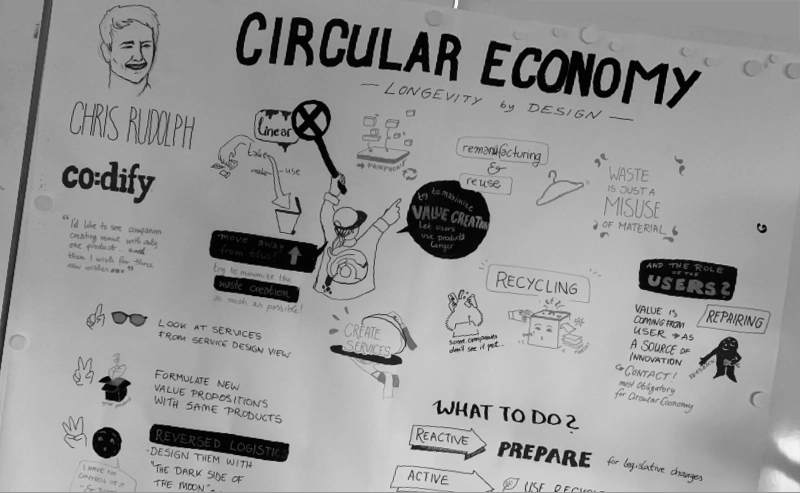 CIRCULAR ECONOMY
— LONGEVITY by DESIGN —
CHRIS RUDOLPH
co:dify
"I'd like to see companies
creating more with only
one product ... and
then I wish for three
new wishes..."
linear
take
make
use
move away
from this!
try to minimize the
waste creation
as much as possible!
→ FAIRPHONE
try to maximize
VALUE CREATION
let users
use products
longer
remanufacturing
&
reuse
WASTE
IS JUST A
MISUSE
OF MATERIAL
RECYCLING
some companies
don't see it yet...
AND THE ROLE
OF THE
USERS?
VALUE IS
COMING FROM
USER → AS
A SOURCE OF
INNOVATION
CONTACT!
most obligatory
for Circular Economy
REPAIRING
CREATE
SERVICES
LOOK AT SERVICES
FROM SERVICE DESIGN VIEW
FORMULATE NEW
VALUE PROPOSITIONS
WITH SAME PRODUCTS
REVERSED LOGISTICS
- DESIGN THEM WITH
"THE DARK SIDE OF
THE MOON" -
I HAVE NO
CONTROL OF IT
WHAT TO DO?
REACTIVE
PREPARE for legislative changes
ACTIVE
USE